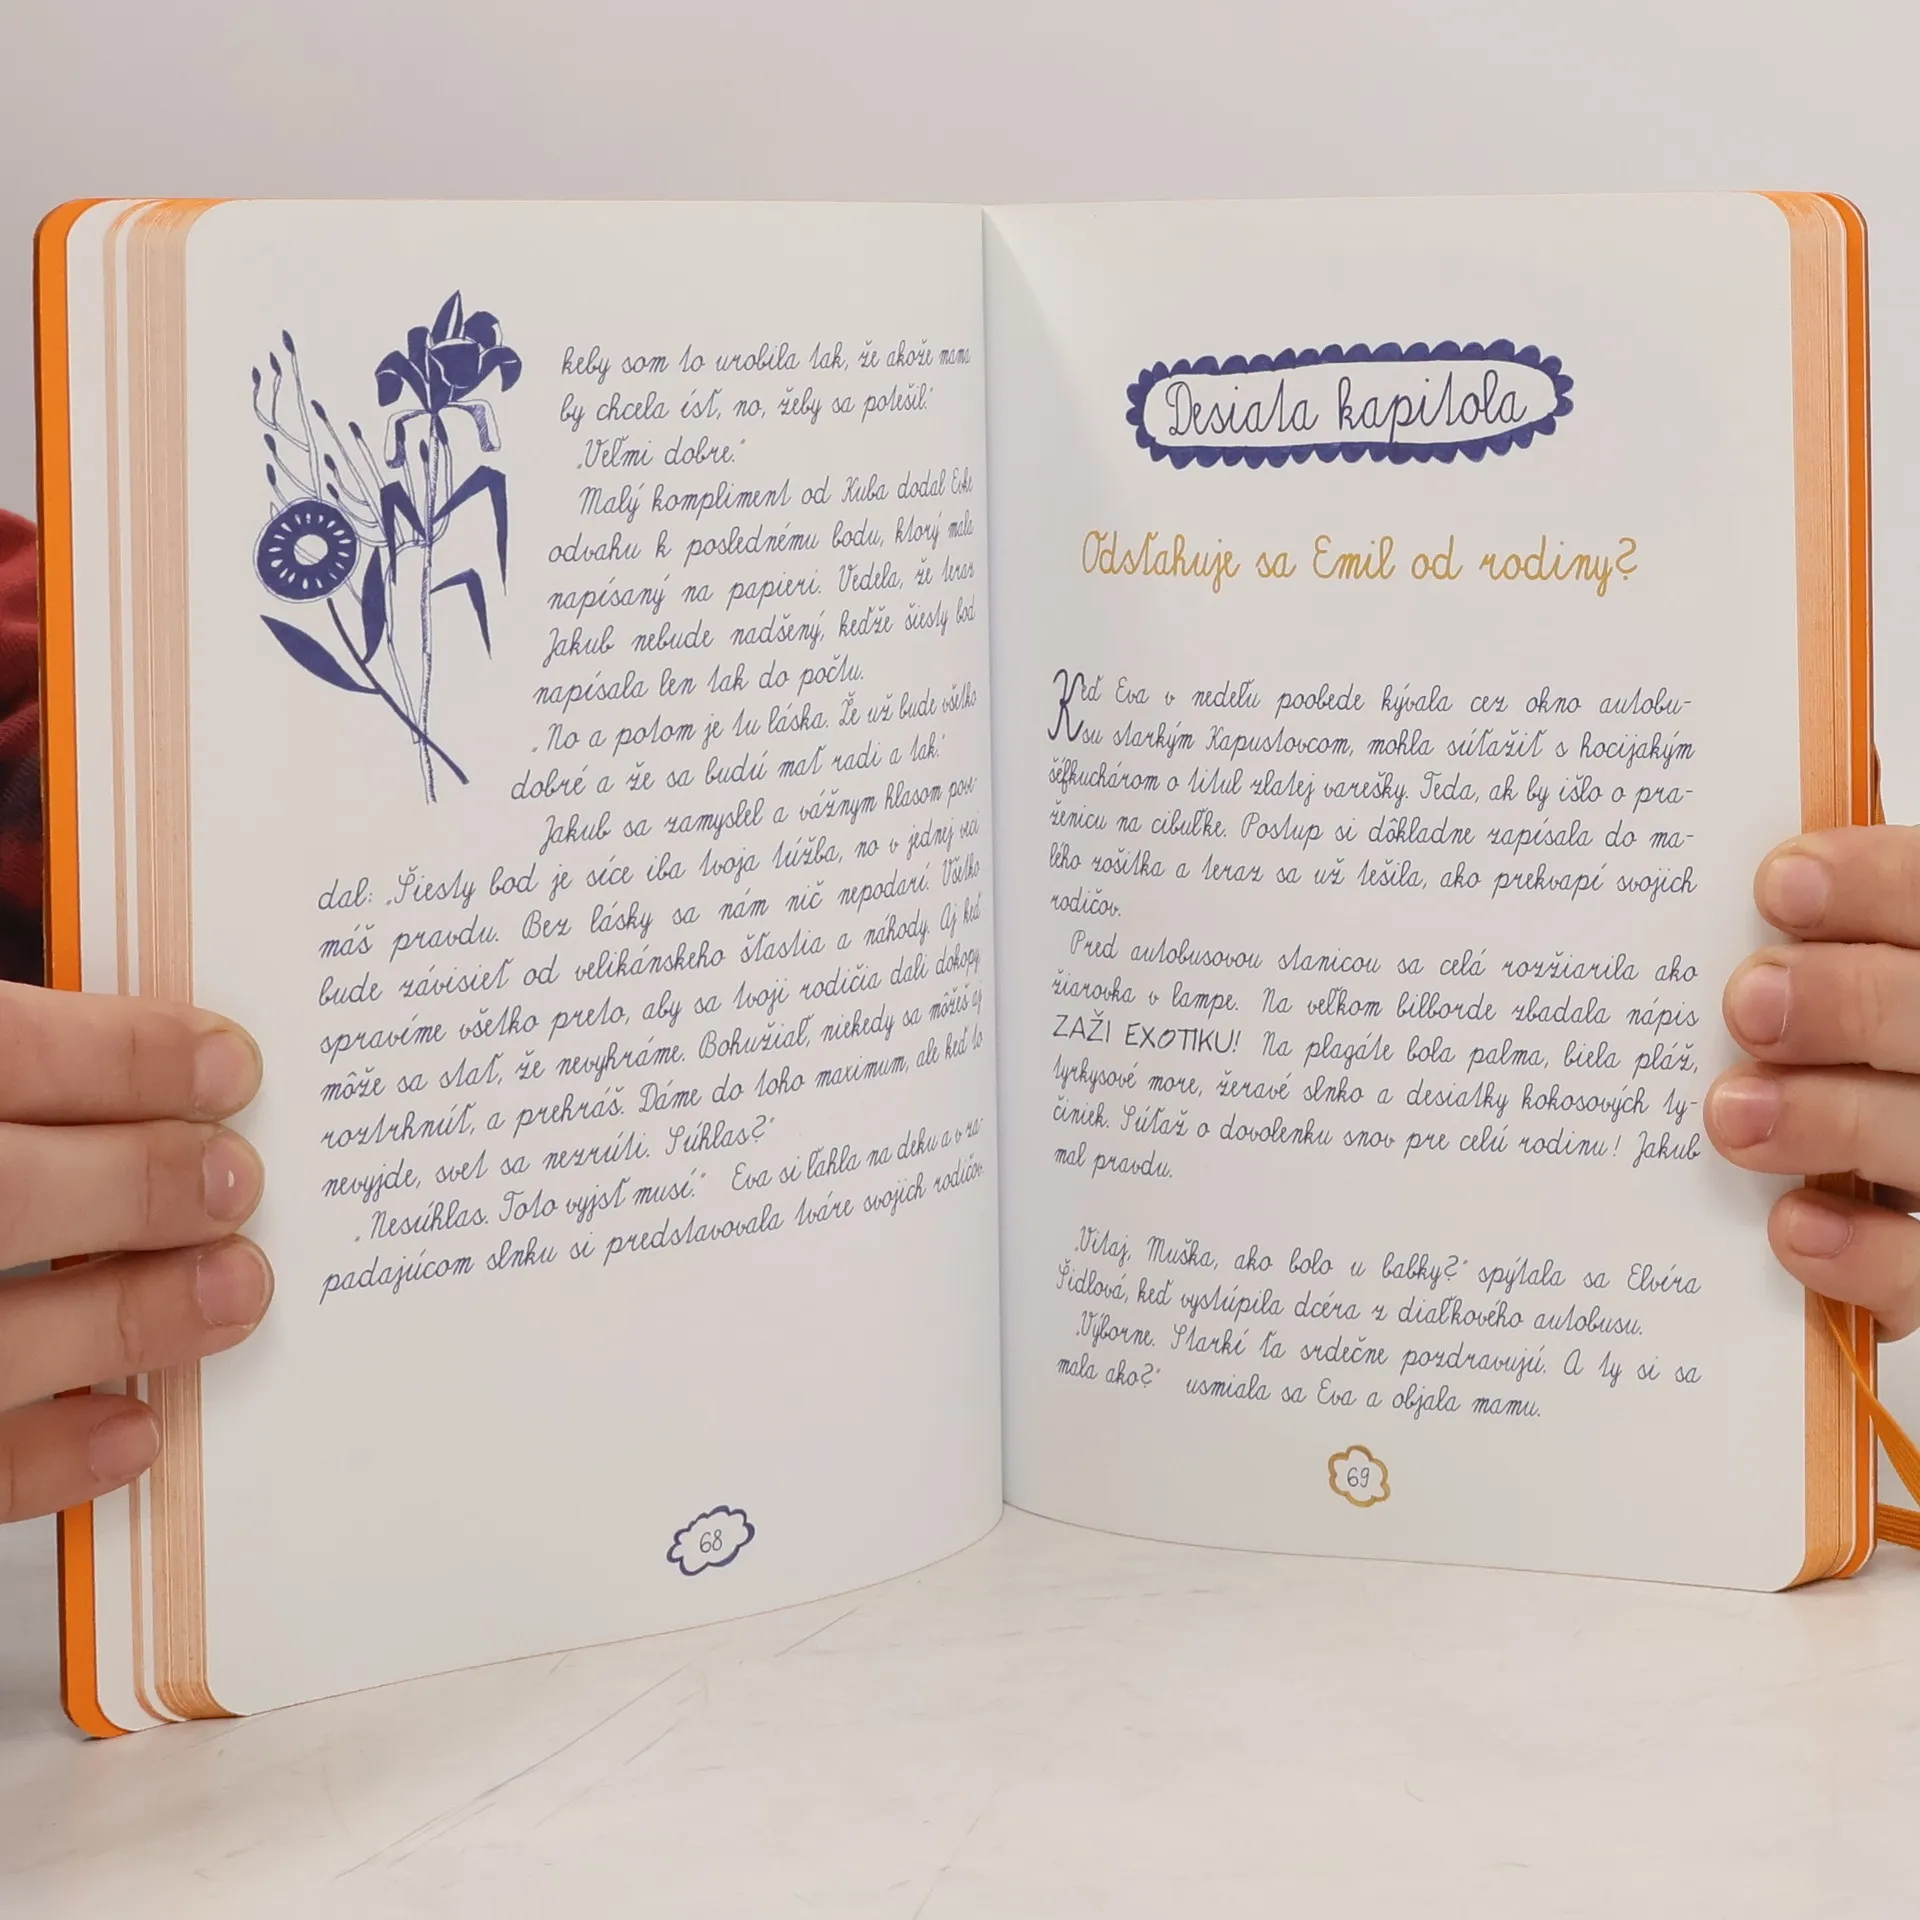 keby som to urobila tak, že akože mama
by chcela ísť, no, žeby sa potešil."
„Veľmi dobre."
Malý kompliment od Kuba dodal Evke
odvahu k poslednému bodu, ktorý mala
napísaný na papieri. Vedela, že teraz
Jakub nebude nadšený, keďže šiesty bod
napísala len tak do počtu.
„No a potom je tu láska. Že už bude všetko
dobré a že sa budú mať radi a tak."
Jakub sa zamyslel a vážnym hlasom pove-
dal: „Šiesty bod je síce iba tvoja túžba, no v jednej veci
máš pravdu. Bez lásky sa nám nič nepodarí. Všetko
bude závisieť od velikánskeho šťastia a náhody. Aj keď
spravíme všetko preto, aby sa tvoji rodičia dali dokopy,
môže sa stať, že nevyhráme. Bohužiaľ, niekedy sa môžeš aj
roztrhnúť, a prehráš. Dáme do toho maximum, ale keď to
nevyjde, svet sa nezrúti. Súhlas?"
„Nesúhlas. Toto vyjsť musí." Eva si ľahla na deku a v za-
padajúcom slnku si predstavovala tváre svojich rodičov.
68
Desiata kapitola
Odsťahuje sa Emil od rodiny?
Keď Eva v nedeľu poobede kývala cez okno autobu-
su starkým Kapustovcom, mohla súťažiť s hocijakým
šéfkuchárom o titul zlatej varešky. Teda, ak by išlo o pra-
ženicu na cibuľke. Postup si dôkladne zapísala do ma-
lého zošitka a teraz sa už tešila, ako prekvapí svojich
rodičov.
Pred autobusovou stanicou sa celá rozžiarila ako
žiarovka v lampe. Na veľkom bilborde zbadala nápis
ZAŽI EXOTIKU! Na plagáte bola palma, biela pláž,
tyrkysové more, žeravé slnko a desiatky kokosových ty-
činiek. Súťaž o dovolenku snov pre celú rodinu! Jakub
mal pravdu.
„Vitaj, Muška, ako bolo u babky?" spýtala sa Elvíra
Šidlová, keď vystúpila dcéra z diaľkového autobusu.
„Výborne. Starkí ťa srdečne pozdravujú. A ty si sa
mala ako?" usmiala sa Eva a objala mamu.
69